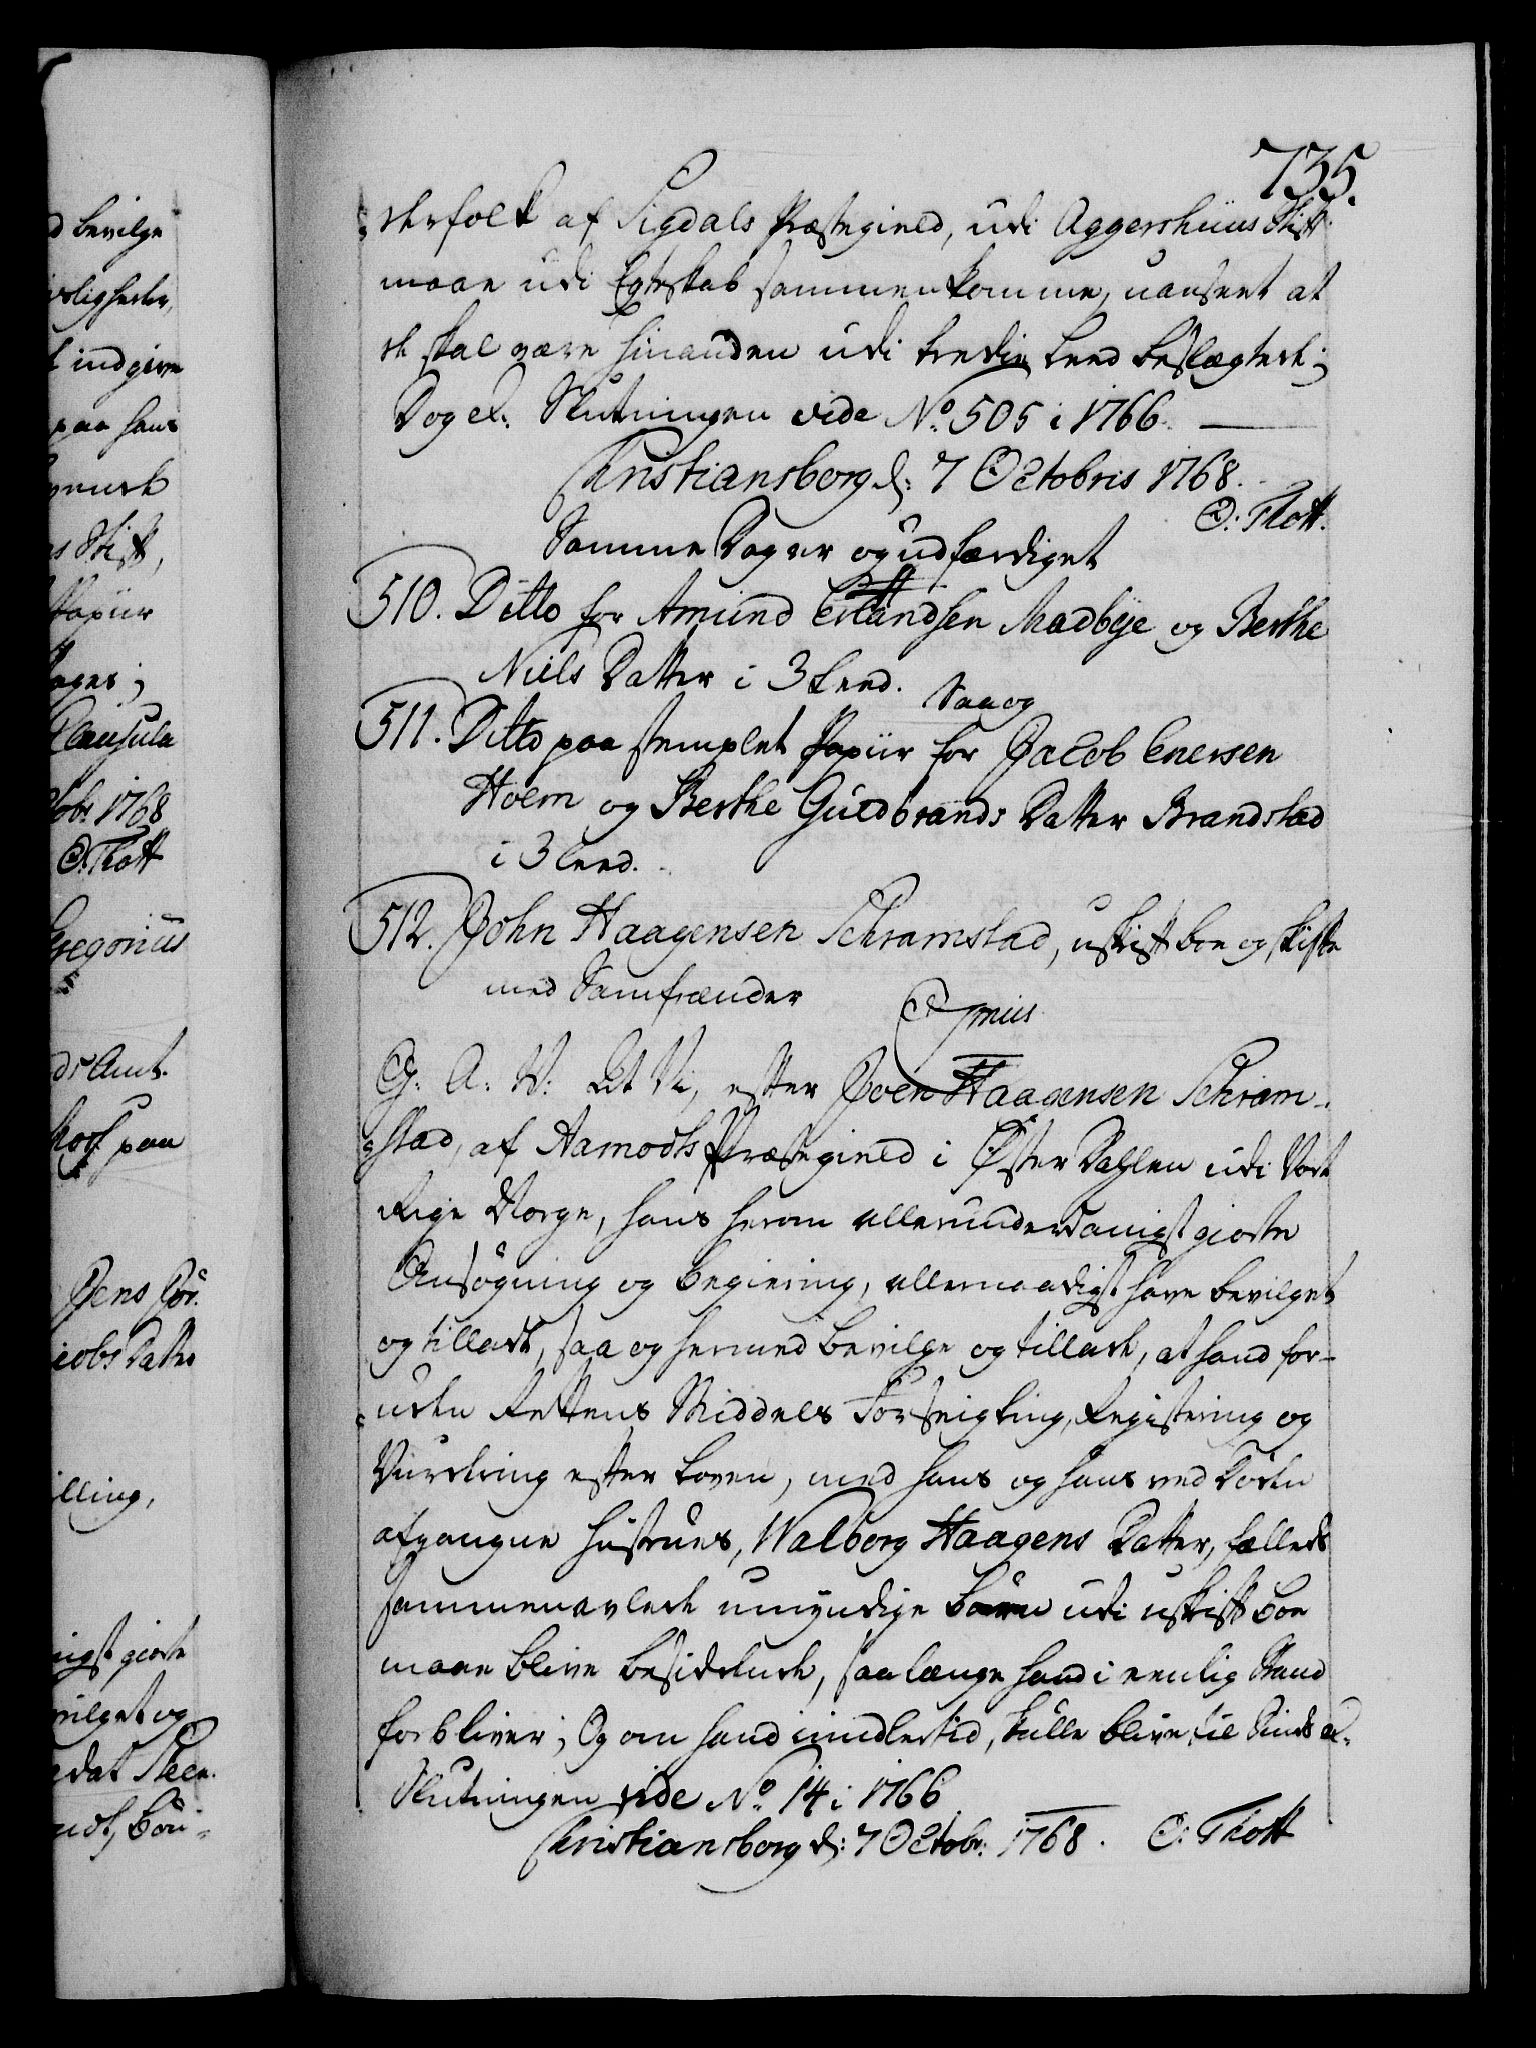 735.
derfolk af Sigdals Præstegield, udi Aggershuus Stift
maae udi Egteskab sammenkomme, uanseet at
de skal være hinanden udi tredie Leed beslægtede;
Dog &c. Slutningen vide No. 505 i 1766.
Christiansborg d: 7 Octobris 1768.
O: Thott.
Samme Dag er og udfærdiget
510. Ditto for Amund Erlandsen Madbye og Berthe
Niels Datter i 3 Leed.
Saa og
511. Ditto paa stemplet Papiir for Jacob Enersen
Hoem og Berthe Guldbrands Datter Brandstad
i 3 Leed.
512. John Haagensen Schramstad, uskift Boe og skifte
med Samfrænder
Gratis
C. 7mus
G: A: V: At Vi, efter Joen Haagensen Schram-
stad, af Aamods Præstegield i Øster Dahlen udi Vort
Rige Norge, hans herom allerunderdanigst giorte
Ansøgning og Begiering, allernaadigst have bevilget
og tilladt, saa og hermed bevilge og tillade, at hand for-
uden Rettens Middels Forseigling, Registering og
Vurdering efter Loven, med hans og hans ved Døden
afgangne Hustrues, Walborg Haagens Datter, fælleds
sammenavlede umyndige Børn udi uskift Boe
maae blive besiddende, saa længe hand i eenlig Stand
forbliver; Og om hand imidlertid, skulle blive til Sinds &c.
Slutningen vide No. 14 i 1766
Christiansborg d: 7 Octobr: 1768. O: Thott